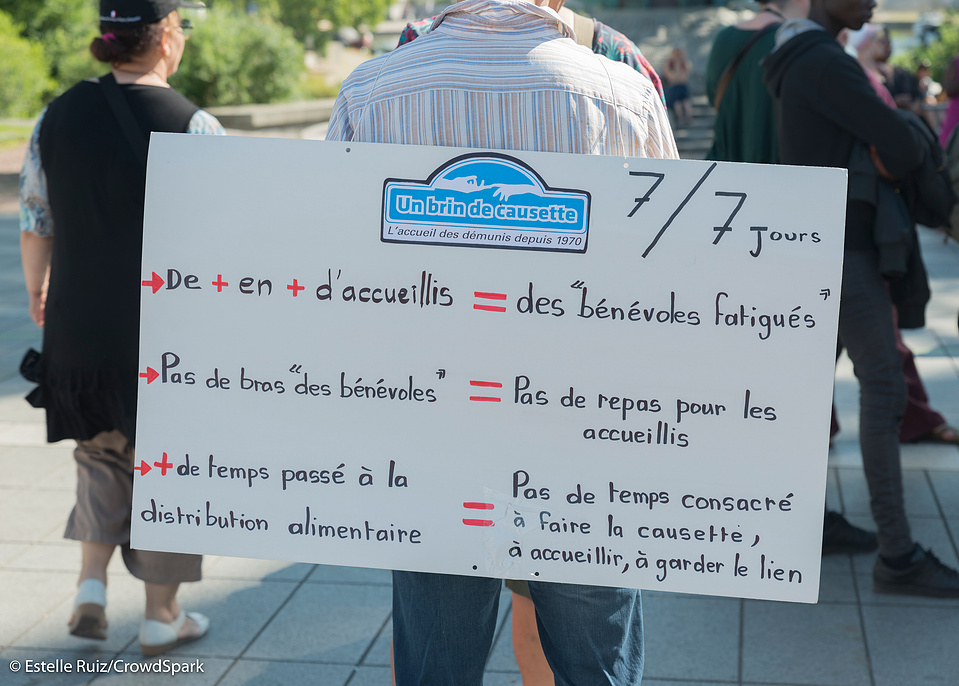 Un brin de causette
L'accueil des démunis depuis 1970
7/7 Jours
→De + en + d'accueillis = des "bénévoles fatigués"
→Pas de bras "des bénévoles" = Pas de repas pour les
accueillis
→+ de temps passé à la
distribution alimentaire
= Pas de temps consacré
à faire la causette,
à accueillir, à garder le lien
© Estelle Ruiz/CrowdSpark